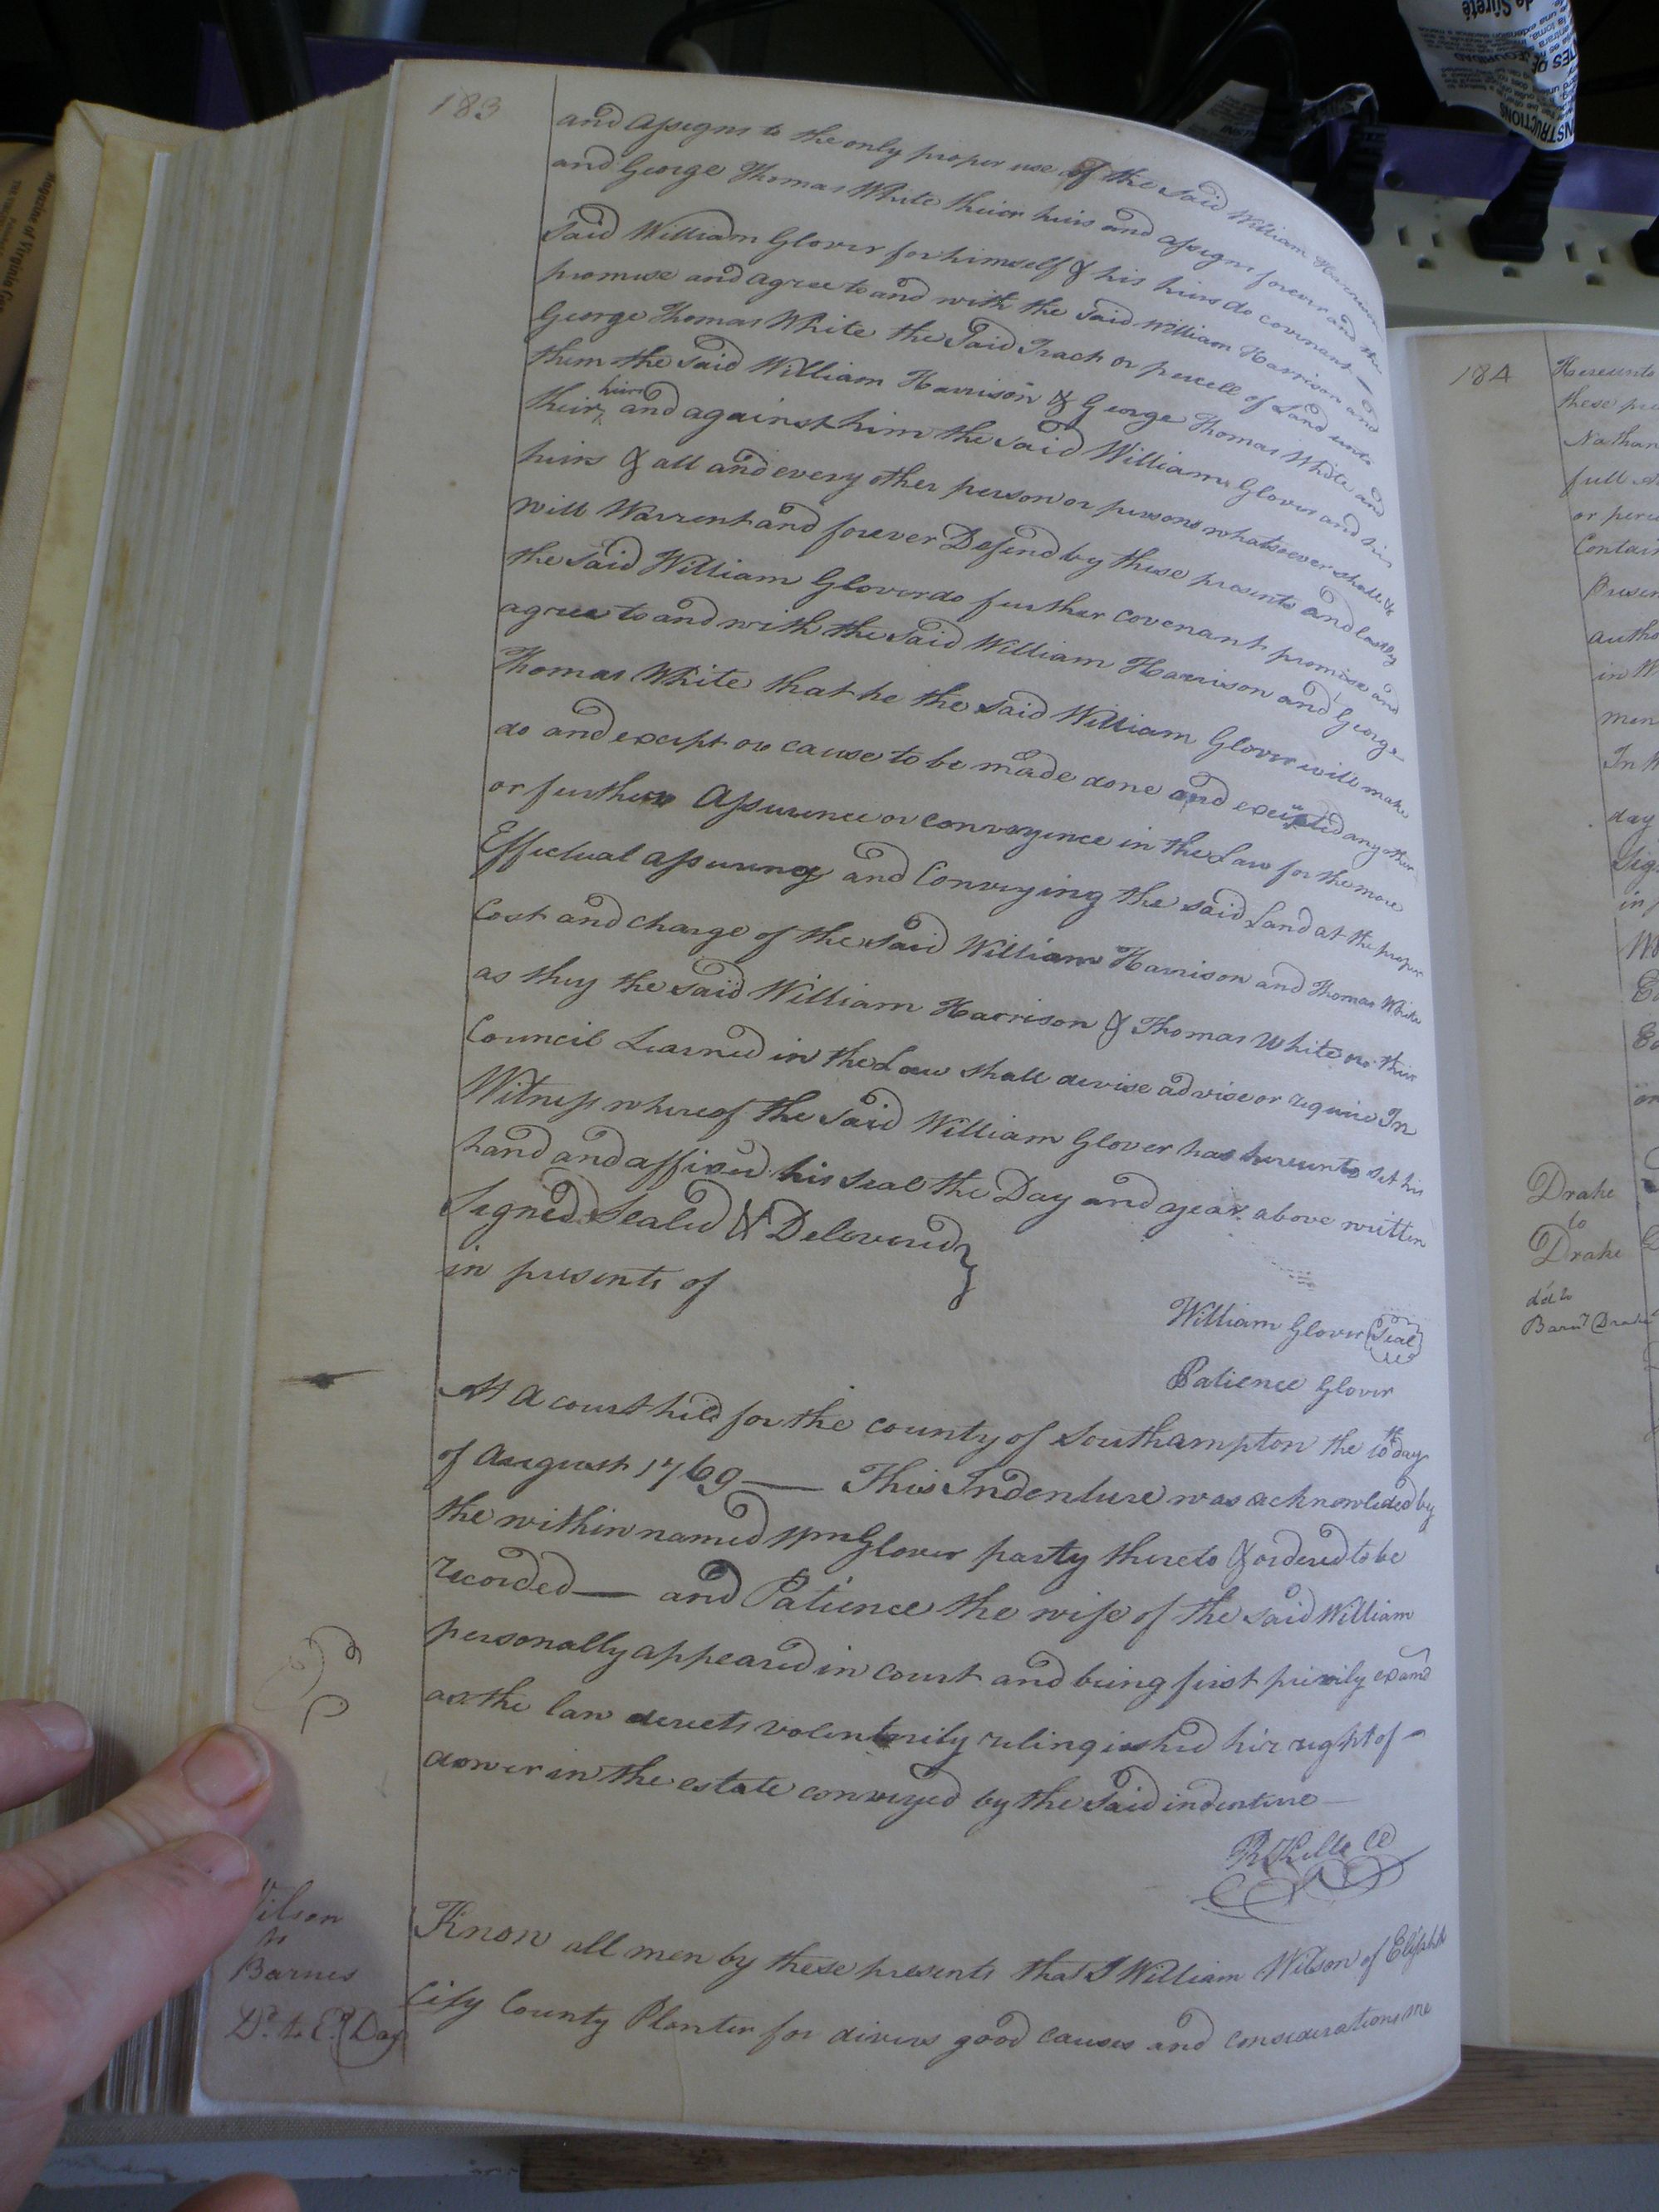 183
and assigns to the only proper use of the said William Harrison
and George Thomas White their heirs and assigns forever and the
Said William Glover for himself & his heirs do covenant
promise and agree to and with the Said William Harrison and
George Thomas White the Said Tract or percell of Land unto
them the said William Harrison & George Thomas White and
their heirs and against him the said William Glover and his
heirs & all and every other person or persons whatsoever shall &
will Warrent and forever Defend by these presents and lastly
the Said William Glover do further covenant promise and
agree to and with the said William Harrison and George
Thomas White that he the said William Glover will make
do and except or cause to be made done and executed any other
or further Assurence or conveyence in the Law for the more
Effectual assuring and Conveying the said Land at the proper
Cost and Charge of the said William Harrison and Thomas White
as they the said William Harrison & Thomas White or their
Council Learned in the Law shall devise advise or require In
Witness whereof the Said William Glover has hereunto set his
hand and affixed his seal the Day and year above written
Signed Sealed & Delevered
in presents of
William Glover Seal
Patience Glover
At A court held for the county of Southampton the 10th day
of August 1769 — This Indenture was acknowleded by
the within named Wm Glover party thereto & ordered to be
recorded — and Patience the wife of the said William
personally appeared in court and being first privily examd
as the law derects volentarily relinquished her right of
dower in the estate conveyed by the Said indenture
Wilson
to
Barnes
Do. to Ed. Day
Know all men by these presents that I William Wilson of Elizabth
City County Planter for divers good causes and considerations me
184
Hereunto
these pre
Nathan
full
or perc
Contain
Presen
autho
in W
men
In W
day
Sig
in
Drake
to
Drake
dd to
Barnt Drake
INSTRUCTIONS
de Sûreté
Magazine of Virginia Gen